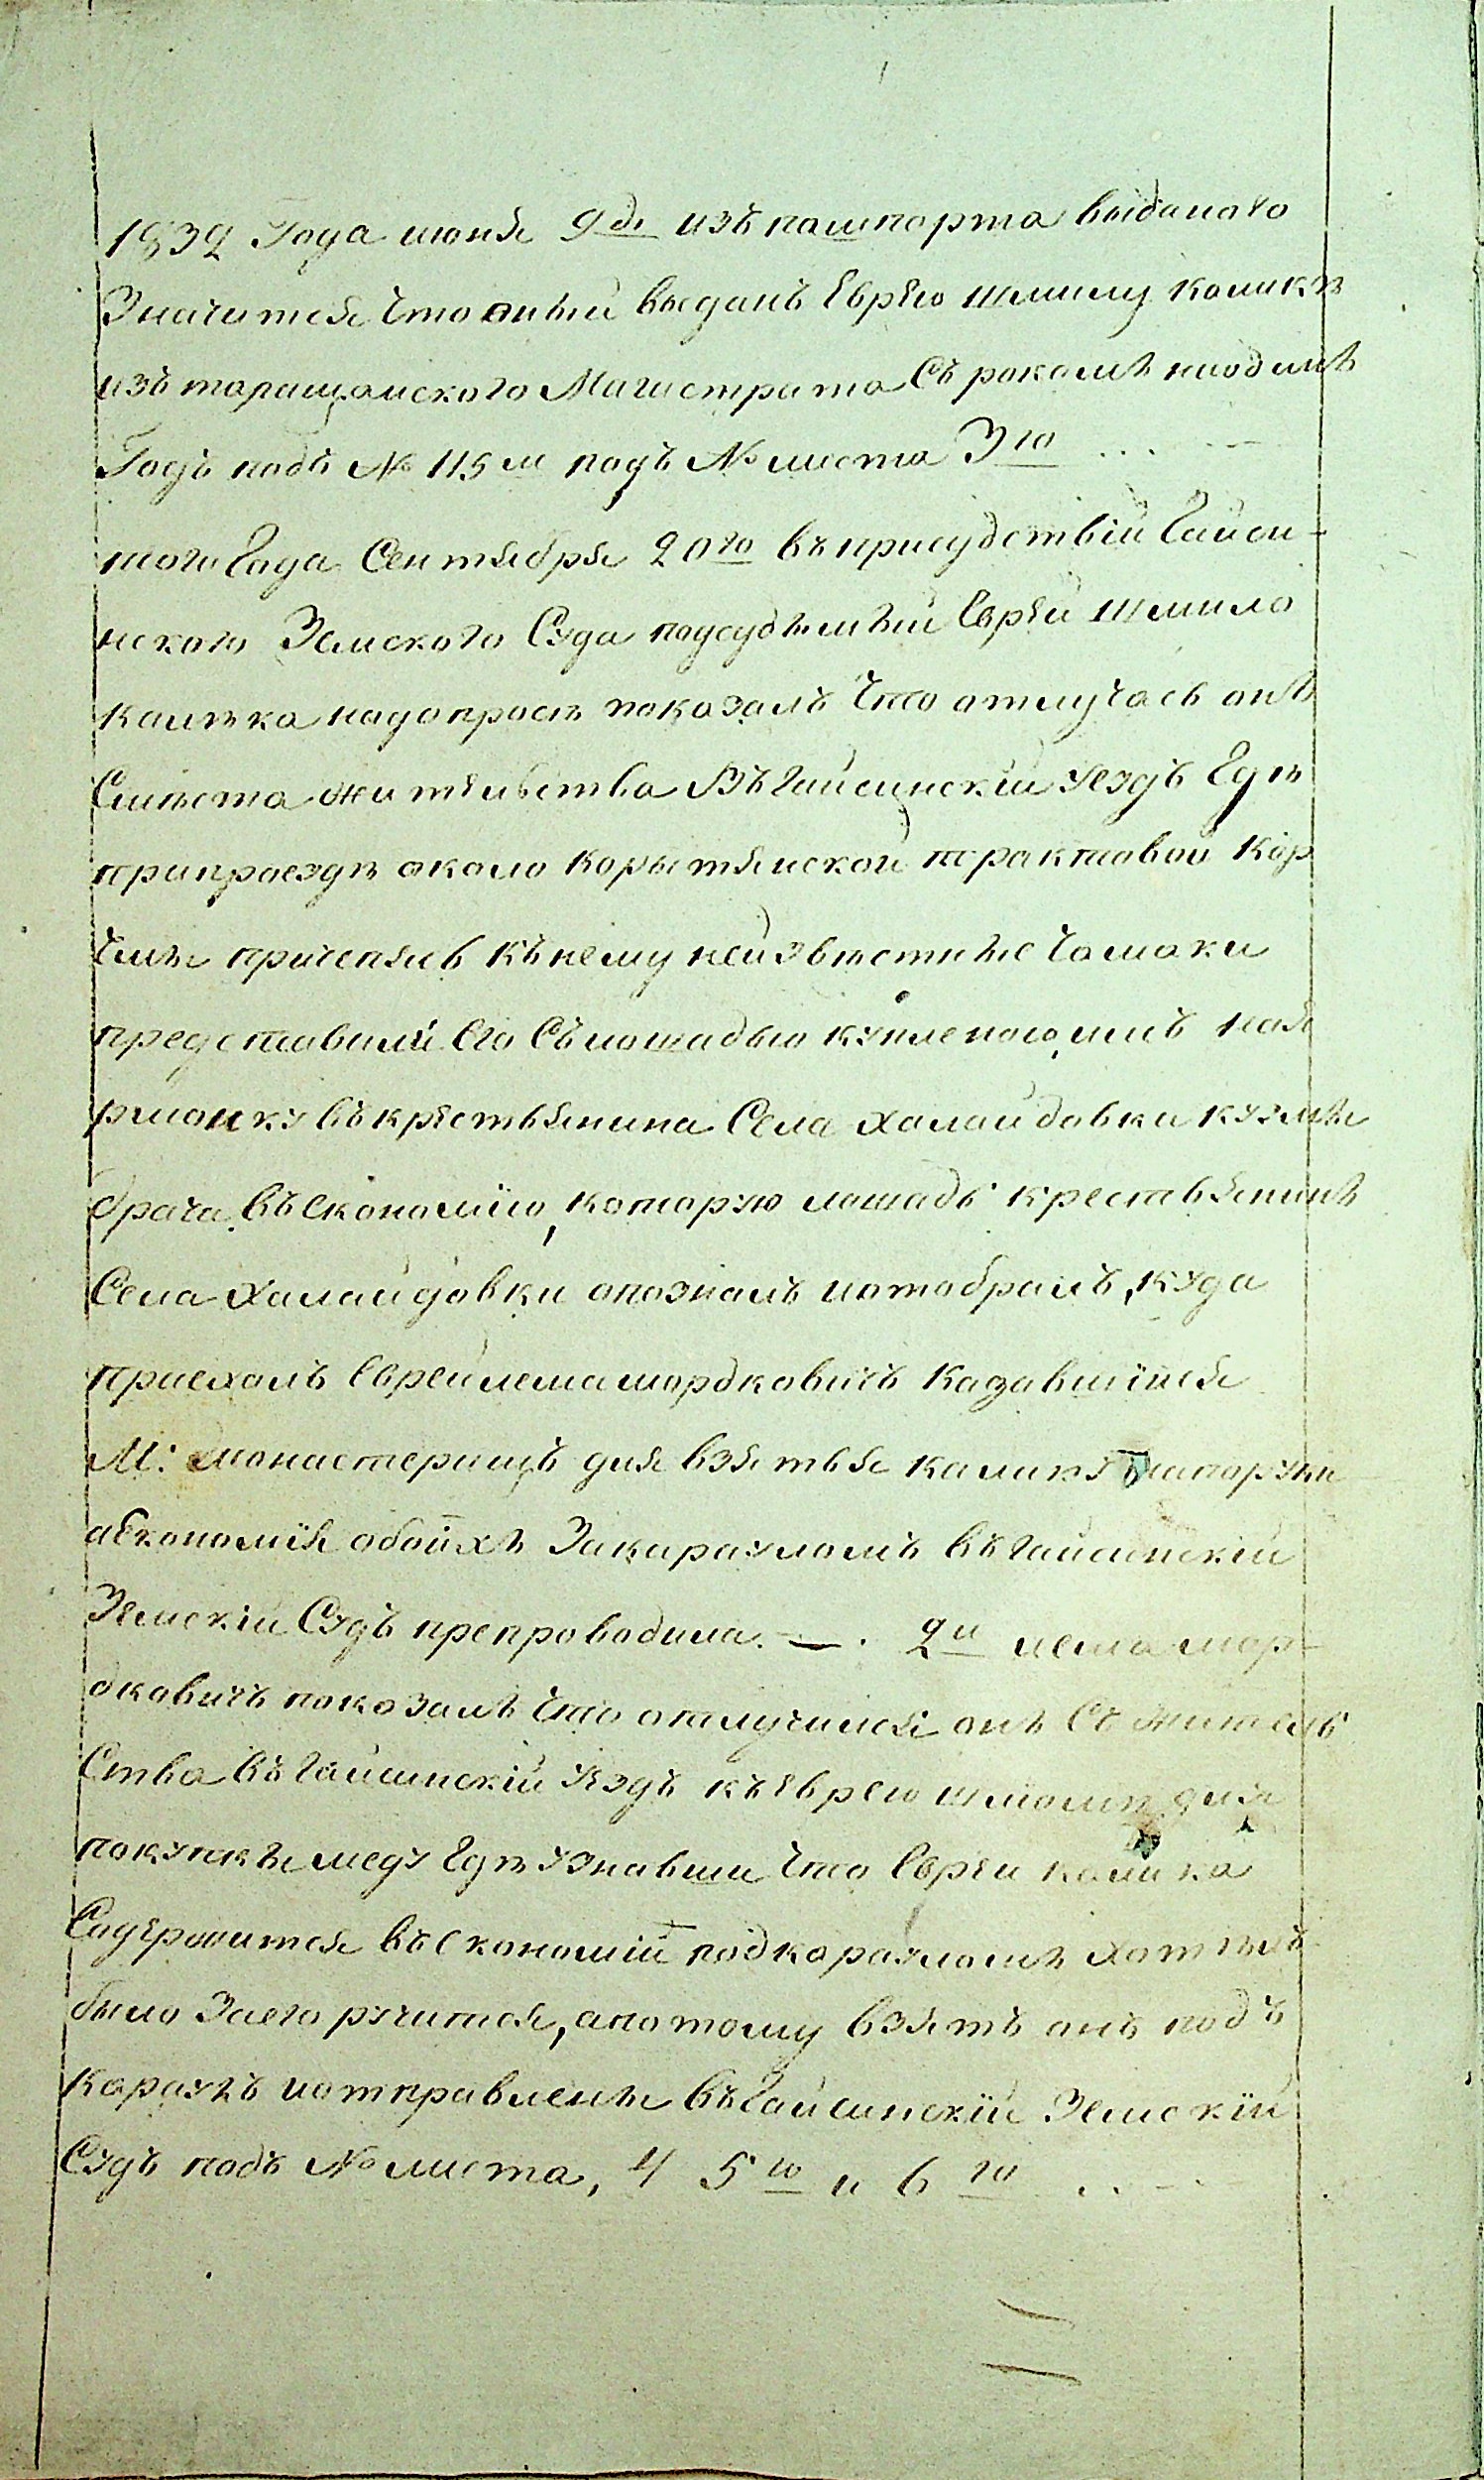 1832 Года июня 9 дн изъ пашпорта выданого
Значится Что оный выданъ Еврѣю шмилу калики
изъ таращанского Магистрата Съ рокомъ наодинъ
Годъ подъ № 115м подъ № листа 3ю ...
того Года Сентября 20го въ присудствіи Гайси-
нского Земского Суда подсудымый Еврѣй Шмило
калѣка надопросѣ показалъ Что отлучась онъ
Смѣста жительства Въ Гайсинскій уездъ Едѣ
припроездѣ около корытянской трактовой кор
Чмы причепясь къ нему неизвѣстные Чомаки
представили Его Съ лошадью купленою имъ ная
рмонку въ крестьянина Села халаидовки кузмы
врача въ Економію, которую лошадь крестьянинъ
Села халаидовки опозналъ иотобралъ, куда
приехалъ Еврей лема мордковичъ казавшійся
М: монастерищъ для взятья калику напоруки
аекономія обоихъ Закарауломъ въ гайсинскій
Земскій Судъ препроводила. — . 2й лема мор-
дковичъ показалъ Что отлучился онъ Съ житель
Ства въ Гайсинскій уѣздъ къ Еврею шмолѣ для
покупкы меду Едѣ узнавши Что Еврей калика
Содержится въ Економіи подкарауломъ хотѣлъ
было Заего ручится, апотому взятъ онъ подъ
караулъ иотправлены въ Гайсинскій Земскій
Судъ подъ № листа, 4 5ю и 6го ...